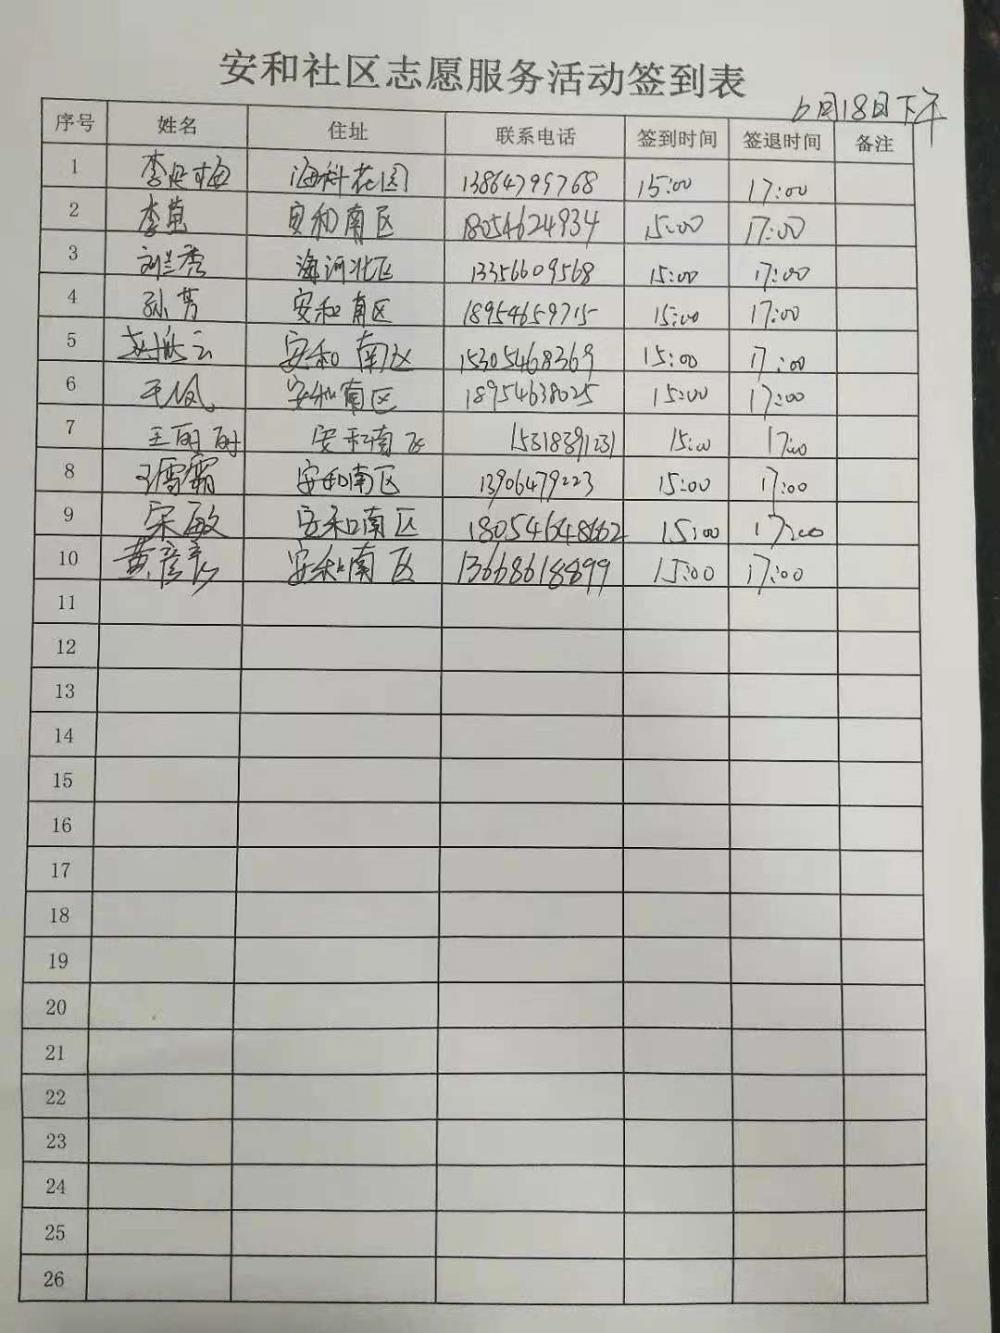 安和社区志愿服务活动签到表
6月18日下午
序号 姓名 住址 联系电话 签到时间 签退时间 备注
1 海科花园 13864795768 15:00 17:00
2 安和南区 18054624934 15:00 17:00
3 刘兰秀 海河北区 13356609568 15:00 17:00
4 孙芳 安和南区 18954659715 15:00 17:00
5 安和南区 15305468369 15:00 17:00
6 安和南区 18954638025 15:00 17:00
7 王丽丽 安和南区 15318391231 15:00 17:00
8 安和南区 13906479223 15:00 17:00
9 宋敏 安和南区 18054648662 15:00 17:00
10 安和南区 13668618899 15:00 17:00
11
12
13
14
15
16
17
18
19
20
21
22
23
24
25
26